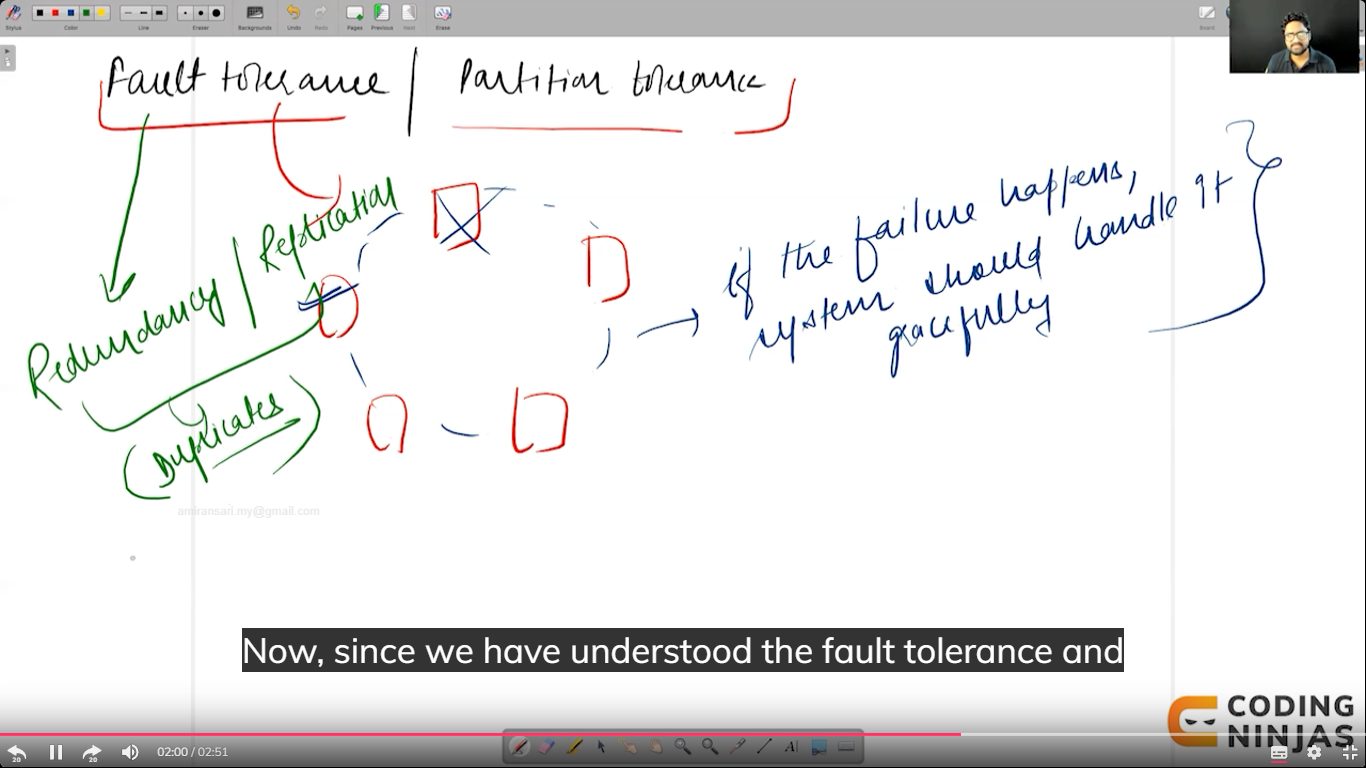 Stylus
Color
Line
Eraser
Backgrounds
Undo
Redo
Pages
Previous
Next
Erase
Board
Fault tolerance / Partition tolerance
Redundancy / Replication
(Duplicates)
if the failure happens,
system should handle it
gracefully
amiransari.my@gmail.com
Now, since we have understood the fault tolerance and
CODING
NINJAS
20
20
02:00 / 02:51